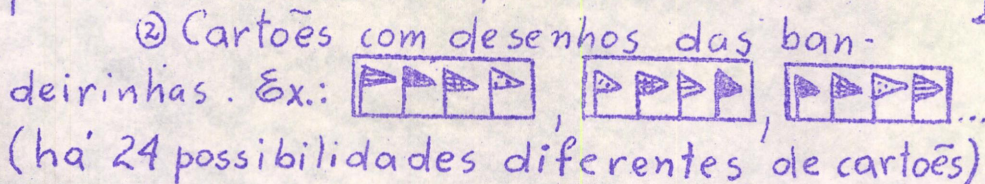 ② Cartões com desenhos das ban-
deirinhas. Ex.: , , ...
(há 24 possibilidades diferentes de cartões)